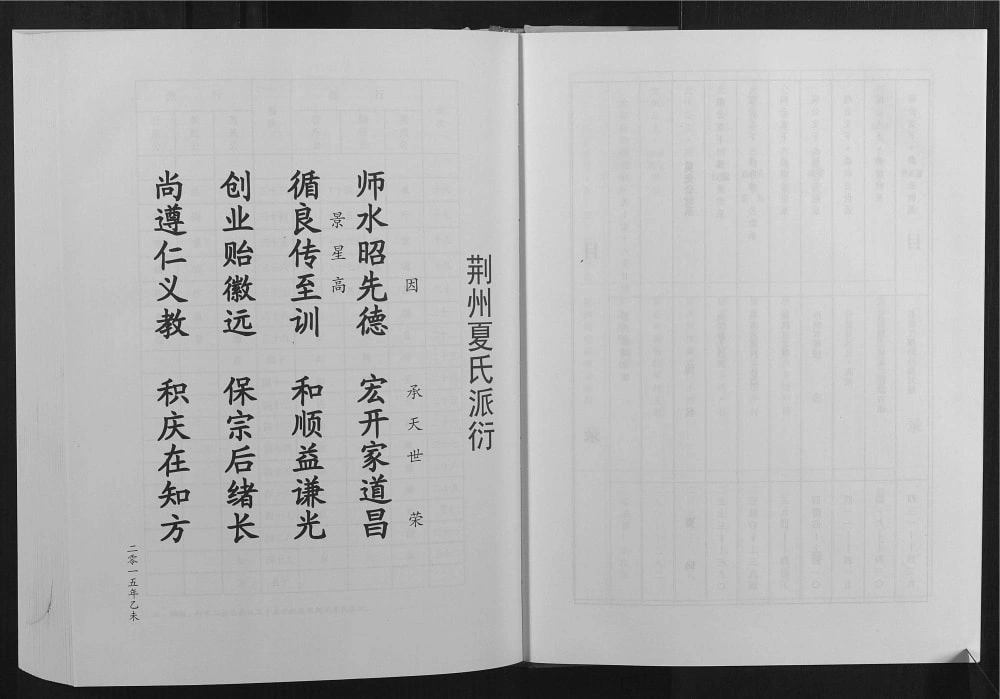 荆州夏氏派衍
因 承天世 荣
师水昭先德 宏开家道昌
景星高
循良传至训 和顺益谦光
创业贻徽远 保宗后绪长
尚遵仁义教 积庆在知方
二零一五年乙未